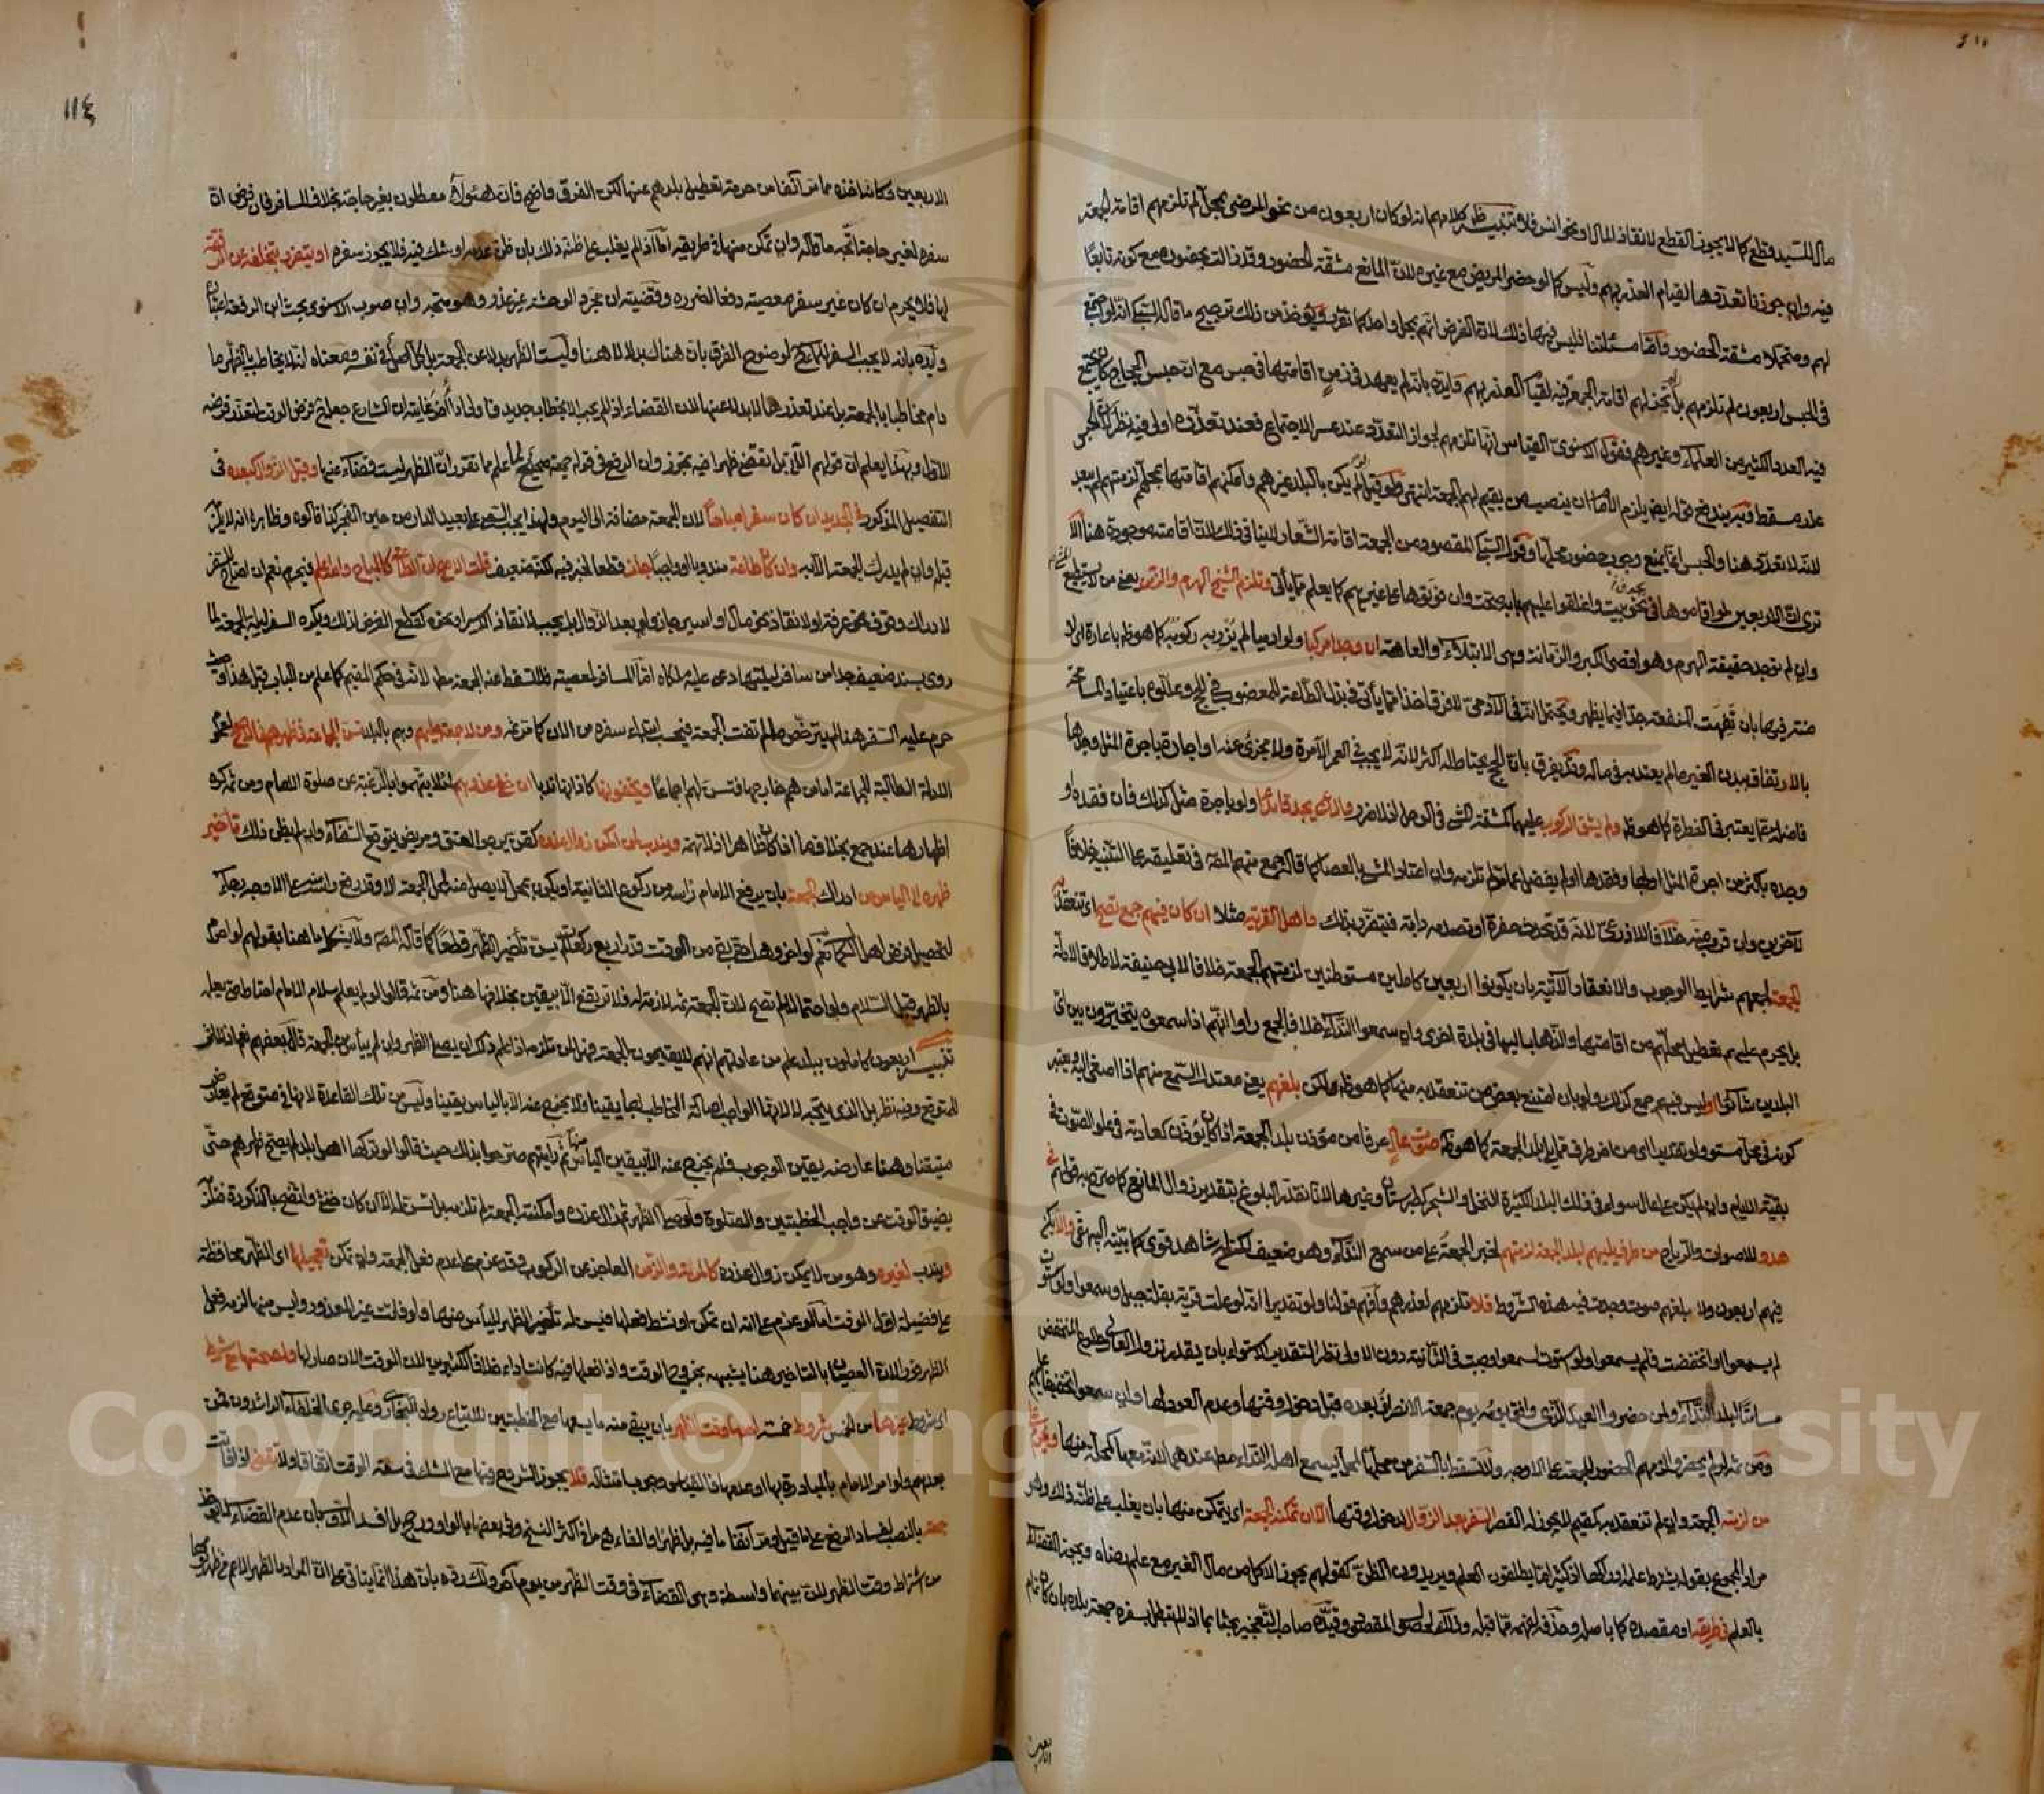 ١١٤
مال للسيد قطع كما لا يجوز القطع لانقاذ المال او نحو انس فلا تنبيه ظاهر كلامهم انه لو كان اربعون من نحو المرضى بمحل لم تلزمهم اقامة الجمعة
فيه وان جوزنا تعددها لقيام العذر بهم وليس كما لو حضر المريض مع غيره لان المانع مشقة الحضور وقد زالت بحضوره مع كونه تابعا
لهم ومتحملا مشقة الحضور واما مسئلتنا فليس فيها ذلك لان الفرض انهم بمحل واحد كما تقرر ويؤخذ من ذلك ترجيح ما قاله السبكى انه لو اجتمع
فى الحبس اربعون لم تلزمهم بل لم تجز لهم اقامة الجمعة فيه لقيام العذر بهم وايده بانه لم يعهد فى زمن اقامتها فى حبس مع ان حبس الحجاج كان يجتمع
فيه العدد الكثير من العلماء وغيرهم فقول الاسنوى القياس انها تلزمهم لجواز التعدد عند عسر الاجتماع فعند تعذره اولى فيه نظر لان الحبس
عذر مسقط وبه يندفع قوله ايضا يلزم الامام ان ينصب من يقيم لهم الجمعة انتهى
لانه لا تعدد هنا والحبس انما يمنع وجوب حضور محلها وقول السبكى المقصود من الجمعة اقامة الشعار لا ينافى ذلك لان اقامته موجودة هنا الا
ترى ان الاربعين لو اقاموها فى نحو بيت واغلقوا عليهم بابه صحت وان فوتوها على غيرهم كما يعلم مما يأتى وتلزم الشيخ الهرم والزمن يعنى من لا يستطيع
وان لم توجد حقيقة الهرم وهو اقصى الكبر والزمانة وهى الابتلاء والعاهة ان وجدا مركبا ولو ادميا لم يزر به ركوبه كما هو ظاهر باعارة اى لا
منة فيها بان تفهت المنفعة جدا فيما يظهر ويحتمل انه فى الآدمى لا فرق اخذا مما يأتى فى بذل الطاعة للمعضوب فى الحج وعللوه باعتياد المسامحة
بالارتفاق ببدن الغير ما لم يعتد به فى ماله وقد يفرق بان الحج يحتاط له اكثر لانه لا يجب فى العمر الا مرة ولا مجزئ عنه او اجارة باجرة المثل وجداها
فاضلة عما يعتبر فى الفطرة كما هو ظاهر ولم يشق الركوب عليهما كمشقة المشى فى الوحل اذ لا ضرر والاعمى يجد قائدا ولو باجرة مثل كذلك فان فقده او
وجده باكثر من اجرة المثل او لها وفقدها او لم يفضل عما مر لم تلزمه وان اعتاد المشى بالعصا كما قاله جمع منهم المصنف فى تعليقه على التنبيه خلافا
لآخرين وان قرب منه خلافا للاذرعى لانه قد تحدث حفرة او تصدمه دابة فيتضرر بذلك واهل القرية مثلا ان كان فيهم جمع تصح اى تنعقد به
الجمعة لجمعهم شرايط الوجوب والانعقاد الآتية بان يكونوا اربعين كاملين مستوطنين لزمتهم الجمعة خلافا لابى حنيفة لاطلاق الادلة
بل يحرم عليهم تعطيل محلهم من اقامتها والذهاب اليها فى بلدة اخرى وان سمعوا النداء خلافا لجمع راوا انهم اذا سمعوه يتخيرون بين اى
البلدين شاؤا او ليس فيهم جمع كذلك ولو بان امتنع بعض من تنعقد به منها كما هو ظاهر ولكن بلغهم يعنى معتدل السمع منهم اذا اصغى اليه ويعتبر
كونه فى محل مستو ولو تقديرا اى من اخر طرف مما يلى بلد الجمعة كما هو ظاهر صوت عال عرفا من مؤذن بلد الجمعة اذا كان يؤذن كعادته فى علو الصوت فى
بقية الايام وان لم يكن على عال سواء فى ذلك البلد الكثيرة النخل والشجر كطبرستان وغيرها لانا نقدر البلوغ بتقدير زوال المانع كما صرح به قولهم فى
هدو للاصوات والرياح من طرف يليهم لبلد الجمعة لزمتهم لخبر الجمعة على من سمع النداء وهو ضعيف لكن له شاهد قوى كما بينه البيهقى والا يكن
فيهم اربعون ولا بلغهم صوت وجدت فيه هذه الشروط فلا تلزمهم لعذرهم وافهم قولنا ولو تقديرا انه لو علت قرية بقلة جبل وسمعوا ولو استوت
لم يسمعوا او انخفضت فلم يسمعوا ولو استوت لسمعوا وجبت فى الثانية دون الاولى نظرا لتقدير الاستواء بان يقدر نزول العالى وطلوع المنخفض
مسامتا لبلد النداء ولو حضروا العيد الذى وافق يومه يوم جمعة فلهم الانصراف بعده قبل دخول وقتها وعدم العود لها وان سمعوا تخفيفا عليهم
ومن ثم لو لم يحضروا لزمهم الحضور للجمعة على الاوجه ولا تسقط بالسفر من محلها لمحل يسمع اهله النداء مطلقا عندهم لانه معها كمحلة منها ويحرم على
من لزمته الجمعة وان لم تنعقد به كمقيم لا يجوز له القصر السفر بعد الزوال لدخول وقتها الا ان تمكنه الجمعة اى يتمكن منها بان يغلب على ظنه ذلك وهو
مراد المجموع بقوله يشترط علمه ادراكها اذ كثيرا ما يطلقون العلم ويريدون الظن كقولهم يجوز الاكل من مال الغير مع علم رضاه ويجوز القضاء
بالعلم فى طريقه او مقصده كما باصله وحذفه لفهمه مما قبله وذلك لحصول المقصود وقيده صاحب التعجيز بحثا بما اذا لم تبطل بسفره جمعة بلده بان كان تمام
الاربعين
الاربعين وكانه اخذه مما مر آنفا من حرمة تعطيل بلدهم عنها لكن الفرق واضح فان هؤلاء معطلون بغير حاجة بخلاف المسافر فان فرض ان
سفره لغير حاجة اتجه ما قاله وان تمكن منها فى طريقه اما اذا لم يغلب على ظنه ذلك بان ظن عدمه او شك فيه فلا يجوز سفره او يتضرر بتخلفه عن الرفقة
لها فلا يحرم ان كان غير سفر معصية دفعا لضرره وقضيته ان مجرد الوحشة غير عذر وهو متجه وان صوب الاسنوى بحث ابن الرفعة اعتباره
وايده بانه لا يجب السفر للماء حينئذ لوضوح الفرق بان هناك بدلا لا هنا وليست الظهر بدلا عن الجمعة بل كل اصل فى نفسه ومعناه انه لا يخاطب بالظهر ما
دام مخاطبا بالجمعة بل عند تعذرها لا بدلا عنها لان القضاء اذا لم يجب الا بخطاب جديد فاولى اداء آخر غايته ان الشارع جعل حينئذ فرض الوقت لمتعذر فرضه
الاول وبهذا يعلم ان قولهم الآتى بل تقضى ظهرا فيه تجوز وان الرفع فى قوله جمعة صحيح لما علم مما تقرر ان الظهر ليست قضاء عنها وقبل الزوال كبعده فى
التفصيل المذكور فى الجديد ان كان سفرا مباحا لان الجمعة مضافة الى اليوم ولهذا يجب السعى على بعيد الدار من حين الفجر كذا قالوه وظاهره انه لا يلزمه
قبله وان لم يدرك الجمعة الا به وان كان طاعة مندوبا او واجبا جاز قطعا لخبر فيه لكنه ضعيف قلت الاصح ان الطاعة كالمباح والله اعلم فيحرم نعم ان احتاج للسفر
لادراك وقوف نحو عرفة او لانقاذ نحو مال او اسير جاز ولو بعد الزوال بل يجب لانقاذ الاسير او نحوه كقطع الفرض لذلك ويكره السفر ليلة الجمعة لما
روى بسند ضعيف جدا من سافر ليلتها دعا عليه ملكاه اما المسافر لمعصية فلا تسقط عنه الجمعة مطلقا لانه فى حكم المقيم كما علم من الباب قبل هذا وحيث
حرم عليه السفر هنا لم يترخص ما لم تفت الجمعة فيحسب ابتداء سفره من الآن كما مر ثم ومن لا جمعة عليهم وهم بالبلد تسن الجماعة فى ظهرهم فى الاصح لعموم
الادلة الطالبة للجماعة اما من هم خارجها فتسن لهم اجماعا ويخفونها كاذانها ندبا ان خفى عذرهم لئلا يتهموا بالرغبة عن صلوة الامام ومن ثم كره
اظهارها عند جمع بخلاف ما اذا كان ظاهرا اذ لا تهمة ويندب لمن امكن زوال عذره كقن يرجو العتق ومريض يتوقع الشفاء وان لم يظن ذلك تأخير
ظهره الى اليأس من ادراك الجمعة بان يرفع الامام راسه من ركوع الثانية او يكون بمحل لا يصل منه لمحل الجمعة الا وقد رفع راسه منه على الاوجه رجاء
لتحصيل فرض اهل الكمال نعم لو اخروها حتى بقى من الوقت قدر اربع ركعات لم يسن تأخير الظهر قطعا كما قاله المصنف ولا يشكل ما هنا بقولهم لو احرم
بالظهر قبل السلام ولو احتمالا لم تصح لان الجمعة ثم لازمة له فلا ترتفع الا بيقين بخلافها هنا ومن ثم قالوا لو لم يعلم سلام الامام احتاط حتى يعلمه
تنبيه اربعون كاملون ببلد علم من عادتهم انهم لا يقيمون الجمعة فهل لمن تلزمه اذا علم ذلك ان يصلى الظهر وان لم ييأس من الجمعة قال بعضهم نعم اذ لا اثر
للمتوقع وفيه نظر بل الذى يتجه لا لانها الواجب اصالة المخاطب بها يقينا فلا يخرج عنه الا باليأس يقينا وليس من تلك القاعدة لانها فى متوقع لم يعارض
متيقنا وهنا عارضه يقين الوجوب فلم يخرج عنه الا بيقين اليأس منها ثم رايتهم صرحوا بذلك حيث قالوا لو تركها اهل بلد لم يصح ظهرهم حتى
يضيق الوقت عن واجب الخطبتين والصلوة ولو صلى الظهر ثم زال عذره وامكنته الجمعة لم تلزمه بل تسن له الا ان كان خنثى واتضح بالذكورة فتلزمه
ويندب لغيره وهو من لا يمكن زوال عذره كالمرأة والزمن العاجز عن الركوب وقد عزم على عدم فعل الجمعة وان تمكن تعجيلها اى الظهر محافظة
على فضيلة اول الوقت اما لو عزم على انه ان تمكن او نشط فعلها فيسن له تأخير الظهر لليأس منها ولو فاتت غير المعذور وايس منها لزمه فعل
الظهر فورا لان العصيان بالتأخير هنا يشبه بخروج الوقت واذا فعلها فيه كانت اداء خلافا لكثيرين لان الوقت الآن صار لها ولصحتها مع شرط
اى شروط غيرها من الخمس شروط خمسة احدها وقت الظهر بان يبقى منه ما يسعها مع الخطبتين للاتباع رواه البخارى وعليه جرى الخلفاء الراشدون فمن
بعدهم ولو امر الامام بالمبادرة بها او عدمها فالقياس وجوب امتثاله فلا يجوز الشروع فيها مع الشك فى سعة الوقت اتفاقا ولا تقضى اذا فاتت
جمعة بالنصب لفساد الرفع على ما قيل ومر آنفا ما فيه بل ظهرا والفاء هو ما فى اكثر النسخ وفى بعضها بالواو ورجح بل افسد الاول بان عدم القضاء لا يؤخذ
من اشتراط وقت الظهر لان بينهما واسطة وهى القضاء فى وقت الظهر من يوم آخر ولك رده بان هذا انما ينافى على ان المراد بالظهر الاعم من ظهر يومها